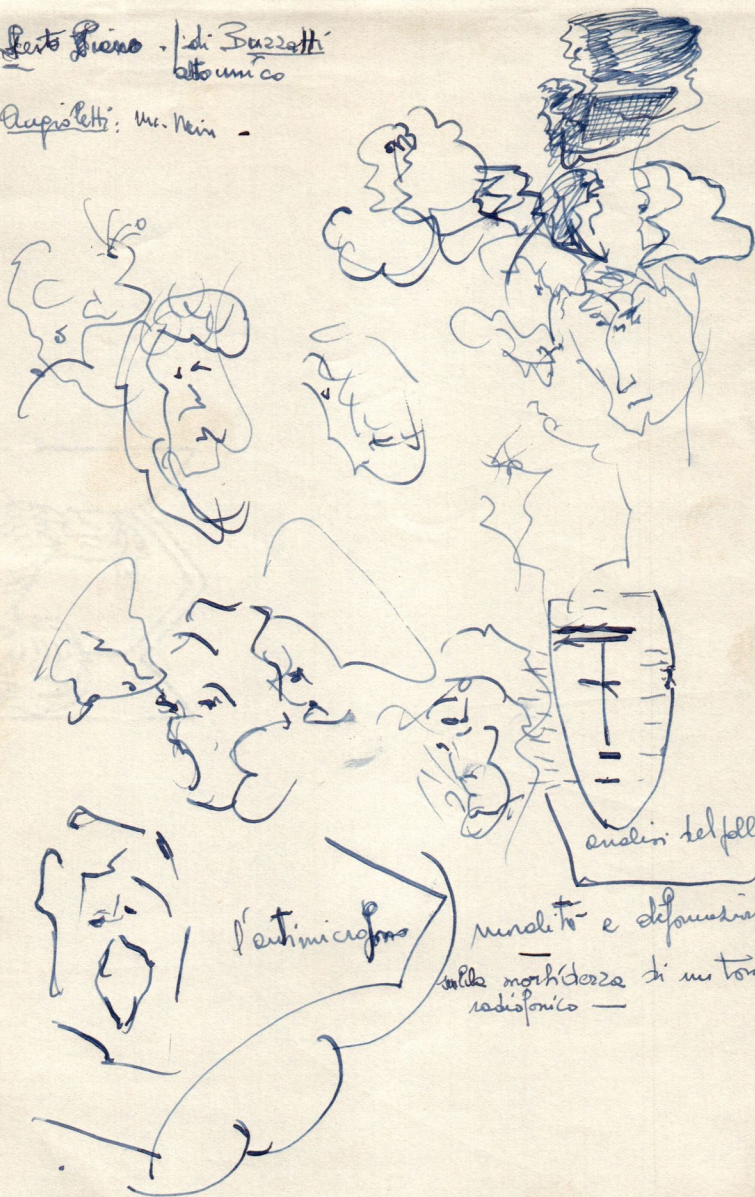 Sesto Piano - di Buzzatti
atto unico
Angioletti: mr.
analisi del foll
l'antimicrofono
e deformazion
sulla morbidezza di un ton
radiofonico —